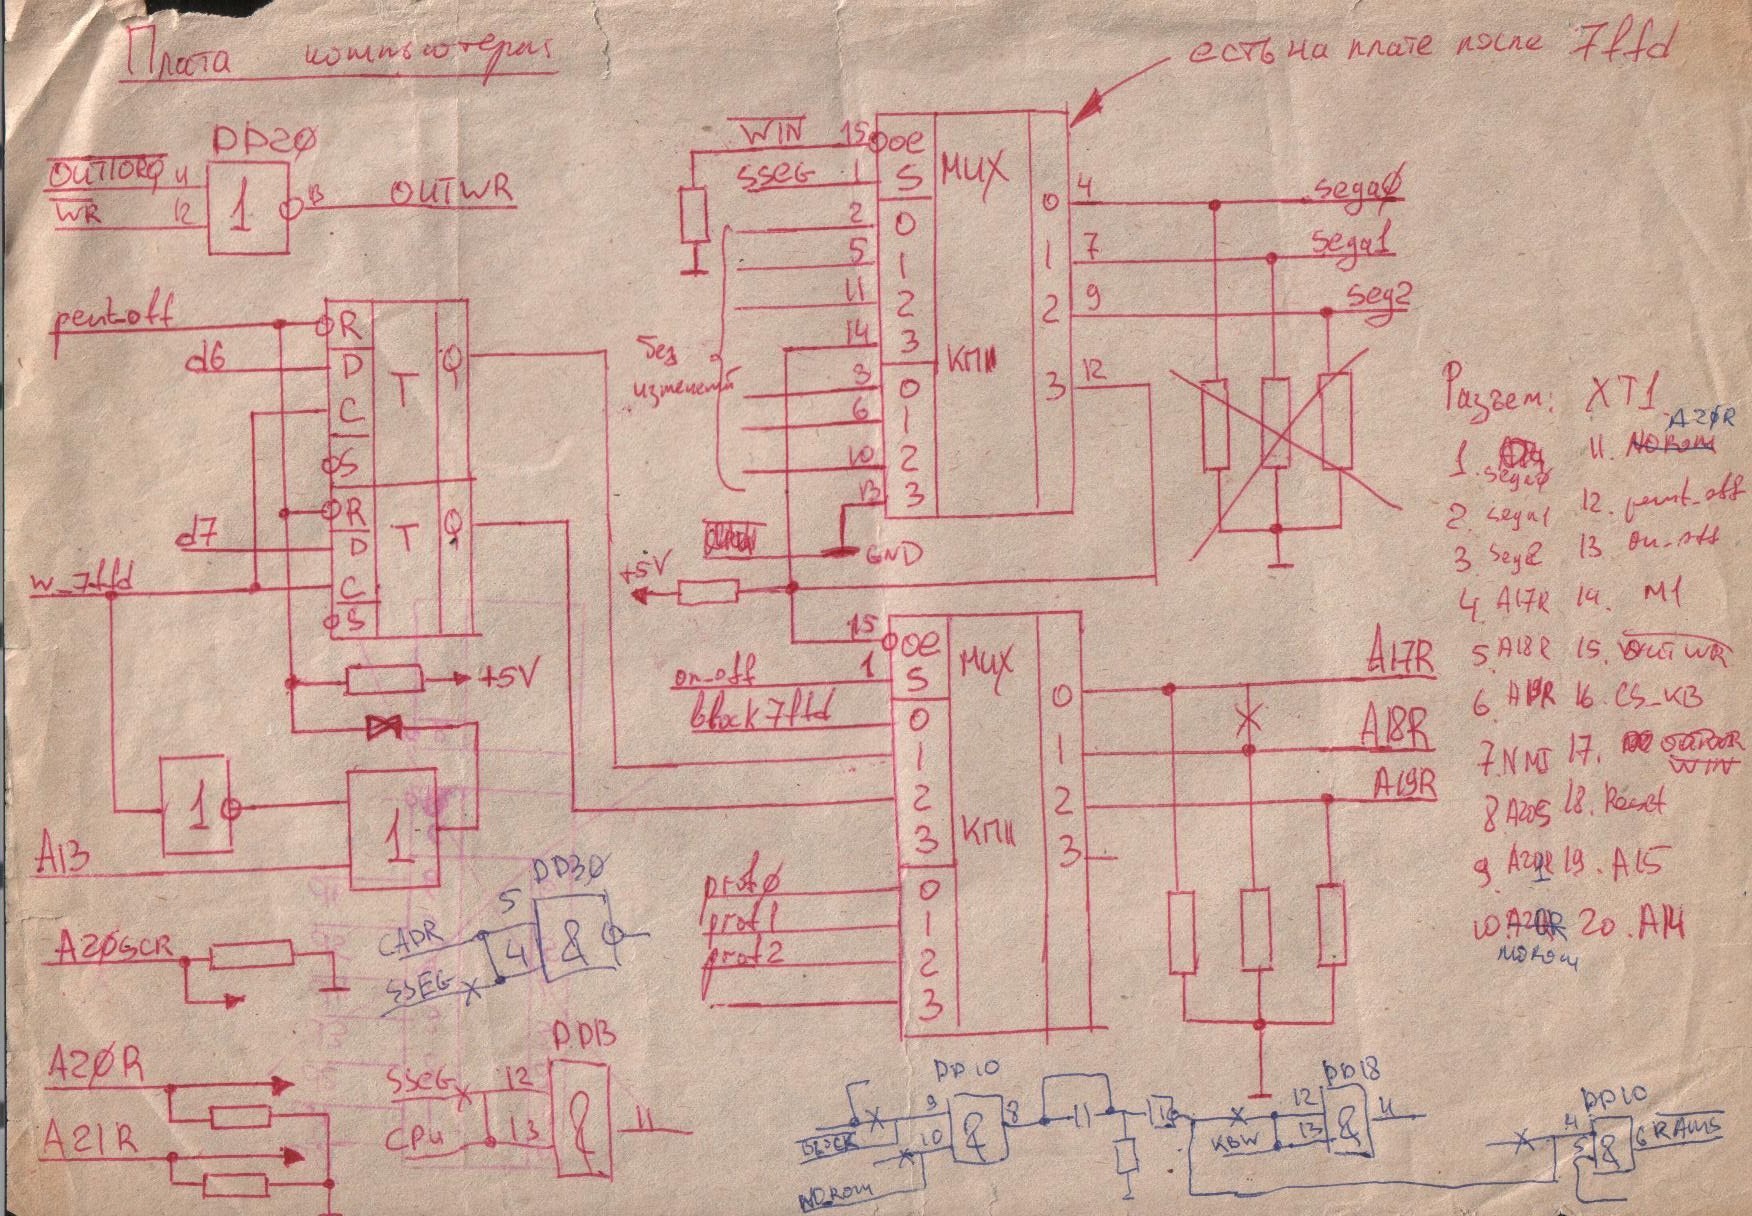 Плата компьютера
есть на плате после 7ffd
DD20
OUTIORQ 11
WR 12
1
13 OUTWR
WIN 15 oe
SSEG 1 S
MUX
2 0
5 1
11 2
14 3
3 0
6 1
10 2
13 3
КП11
0 4 sega0
1 7 sega1
2 9 seg2
3 12
без
изменений
GND
+5V
pent_off
d6
R
D
C
S
T
Q
d7
w_7ffd
R
D
C
S
T
Q
+5V
1
A13
1
15 oe
on_off 1 S
block7ffd 0
1
2
3
MUX
КП11
prof0 0
prof1 1
prof2 2
3
0 A17R
1 A18R
2 A19R
3
Разъем: XT1
1. sega0
2. sega1
3. seg2
4. A17R
5. A18R
6. A19R
7. NMI
8.
9.
10. NOrom
11. A20R
12. pent_off
13. on_off
14. M1
15. OUTWR
16. CS_KB
17. WIN
18. Reset
19. A15
20. A14
A20SCR
DD30
CADR 5
SSEG 4
&
A20R
A21R
DD13
SSEG 12
CPU 13
&
11
DD10
9
10
&
8
BLOCK
NOrom
DD18
12
KBW 13
&
11
DD10
4
5
&
6 RAMS